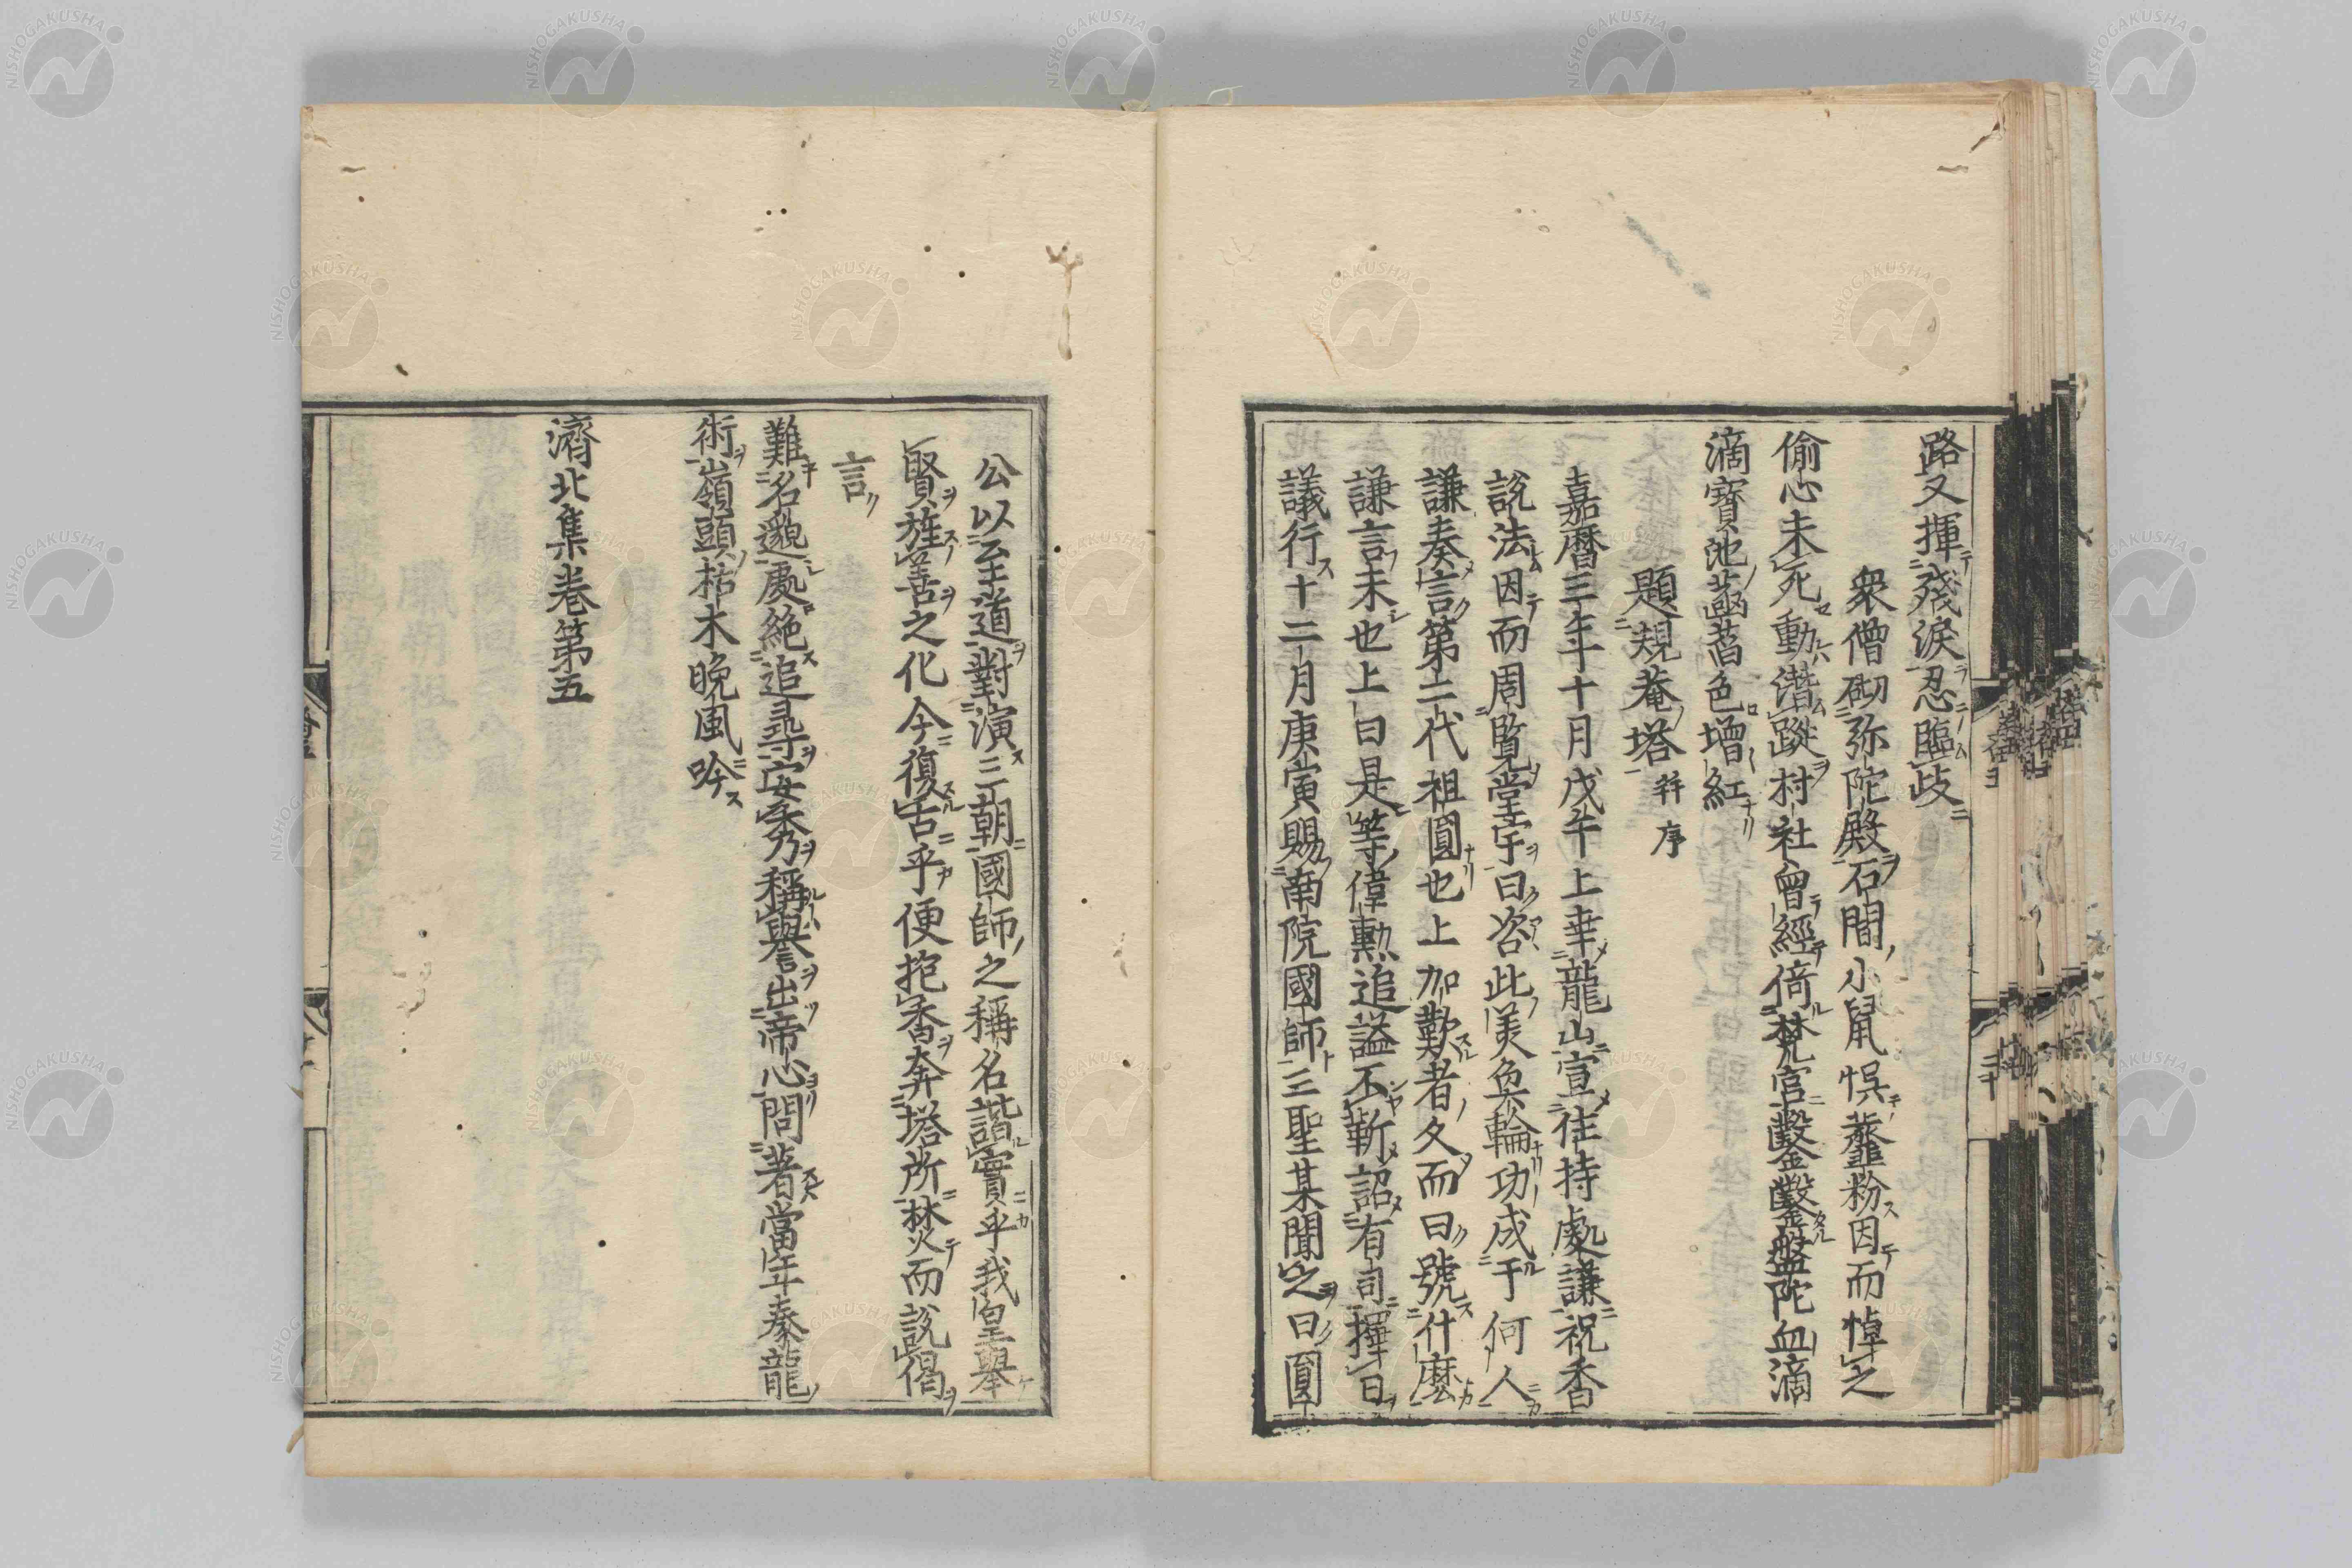 路又揮殘淚忍臨歧
衆僧砌弥陀殿石間小鼠悞虀粉因而悼之
偷心未死動潛蹤村社曾經倚梵宮鑿鑿盤陀血滴
滴寶池菡萏色增紅
題規菴塔 并序
嘉曆三年十月戊午上幸龍山宣住持處謙祝香
說法因而周覽堂宇曰咨此美奐輪功成于何人
謙奏言第二代祖圓也上加歎者久而曰號什麼
謙言未也上曰是等偉勲追謚不靳詔有司擇日
議行十二月庚寅賜南院國師三聖某聞之曰圓
公以至道對演三朝國師之稱名諧實乎我皇舉
賢旌善之化今復舌乎便抱香奔塔所焚而說偈
言
難名邈處絶追尋安秀稱譽出帝心問著當年豢龍
術嶺頭枯木晚風吟
濟北集卷第五